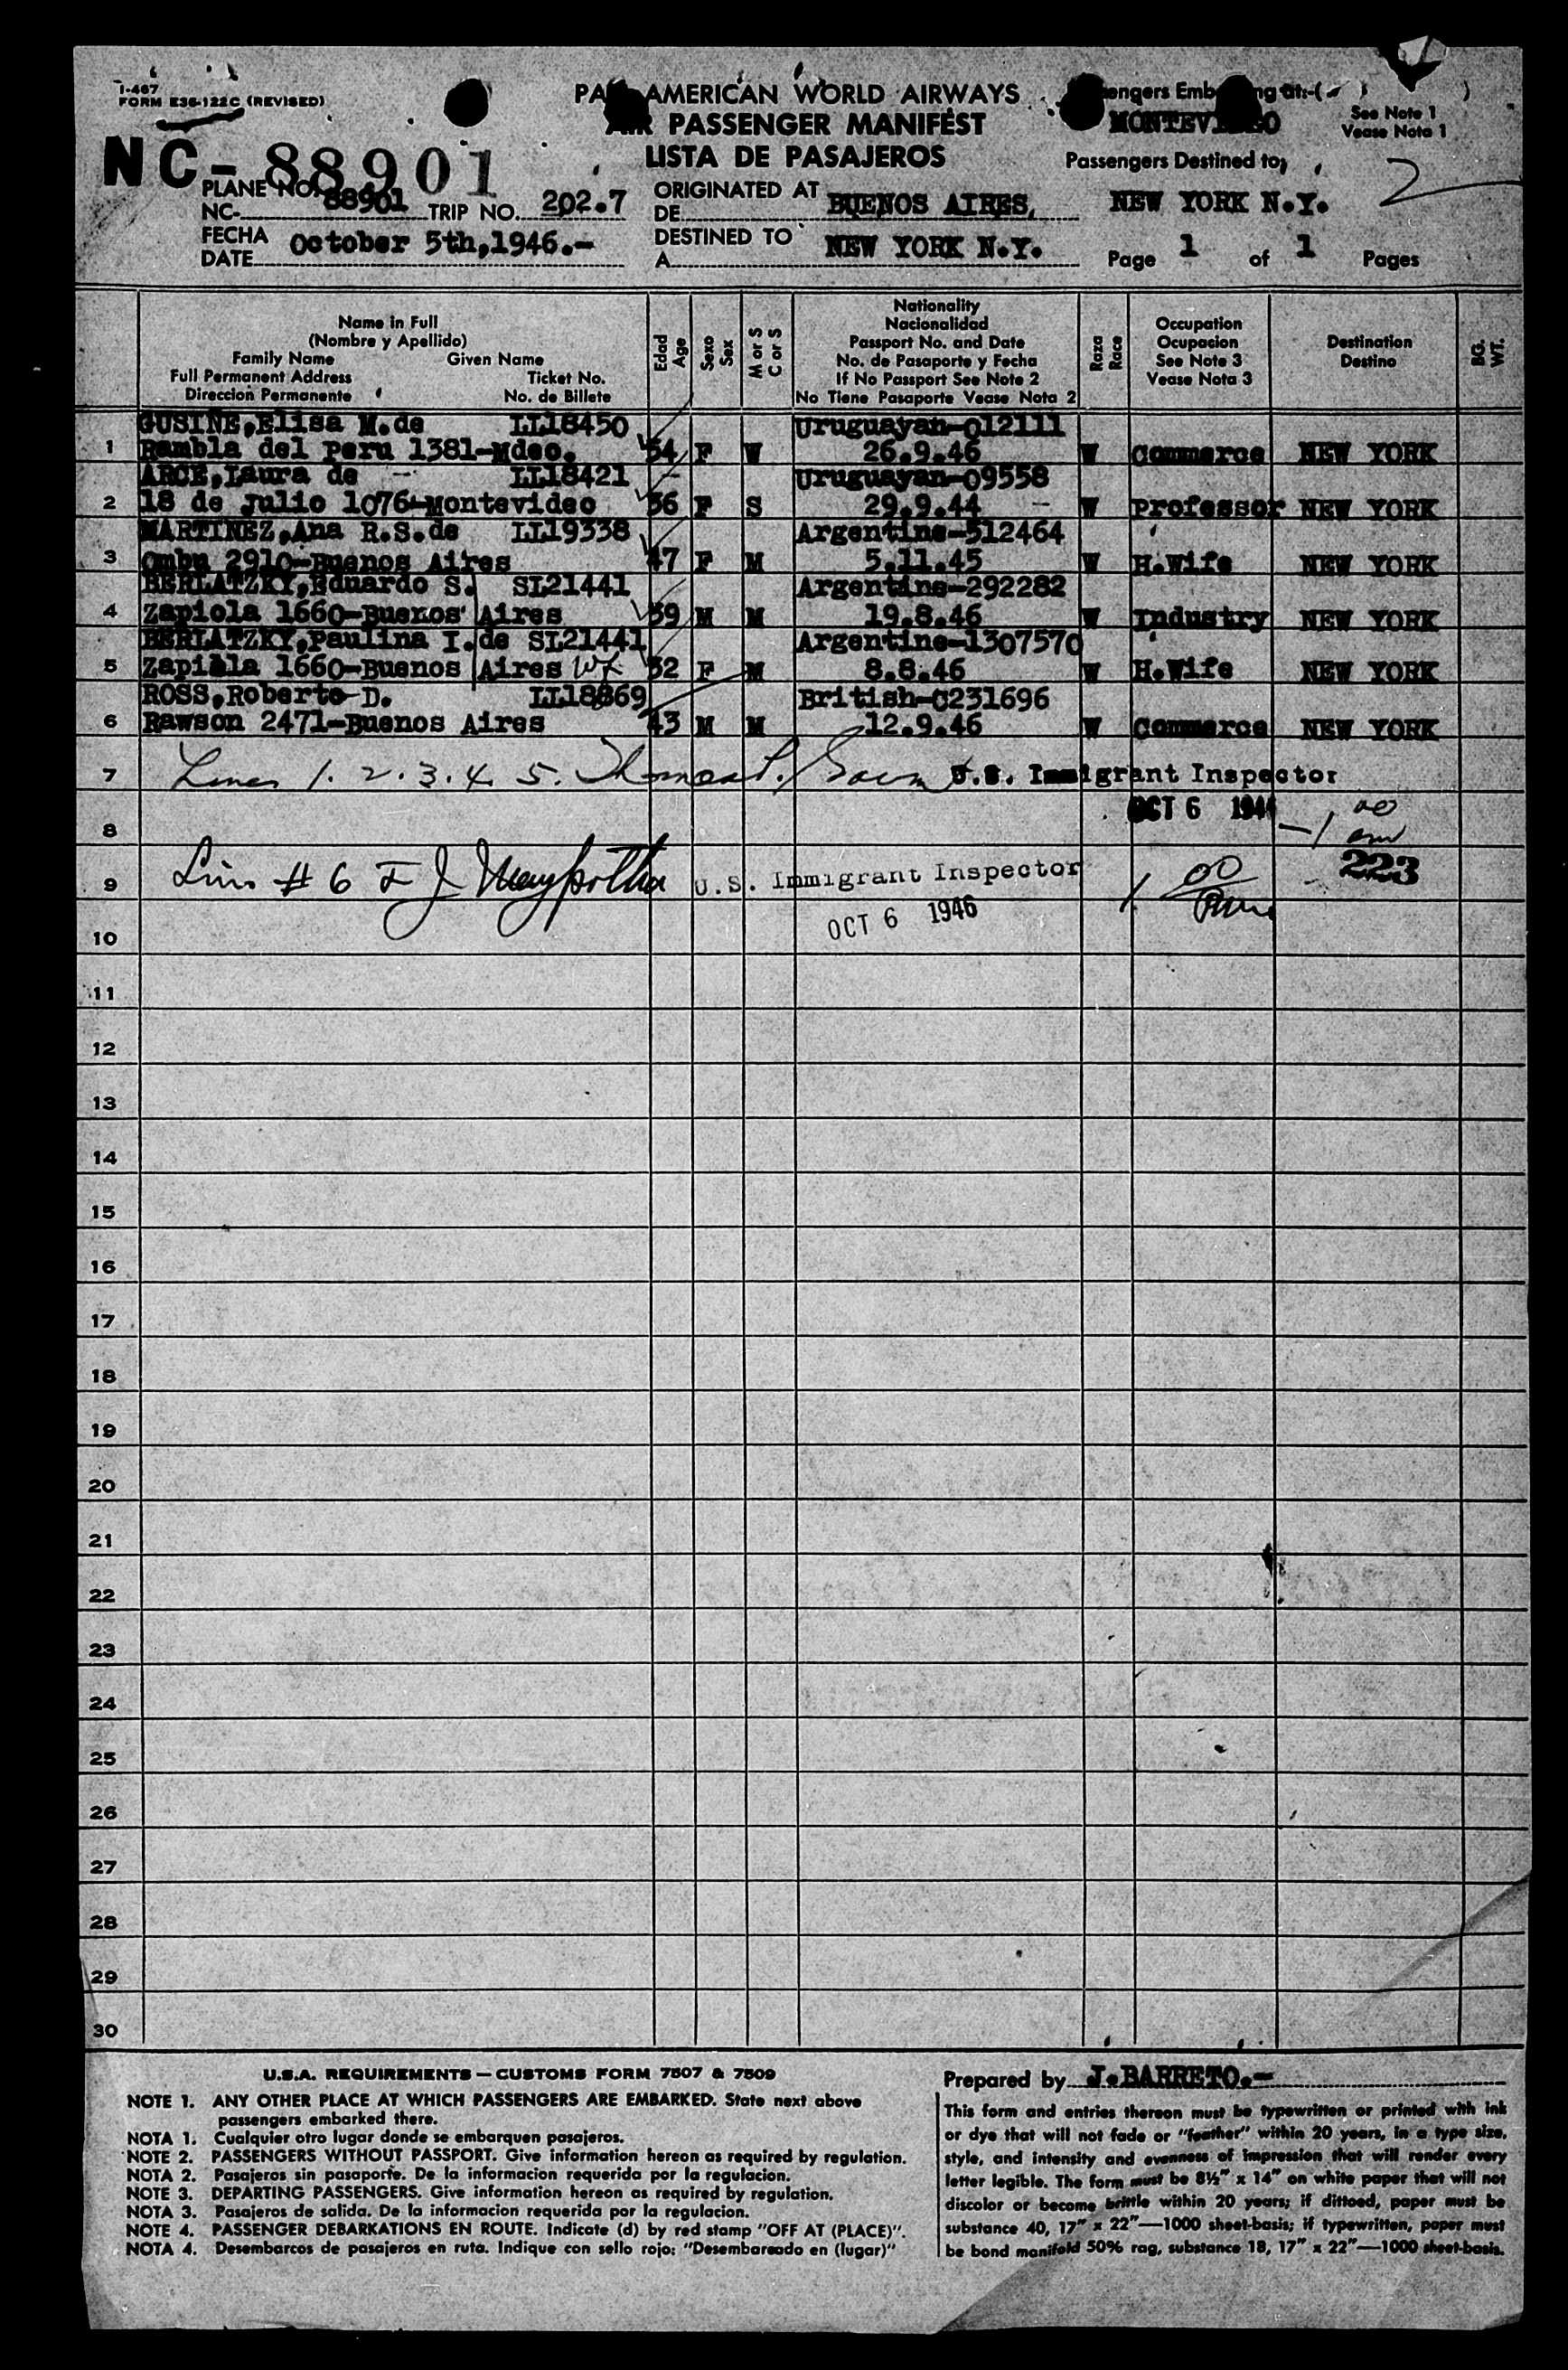 I-467
FORM E36-122C (REVISED)
NC-88901
PAN AMERICAN WORLD AIRWAYS
AIR PASSENGER MANIFEST
LISTA DE PASAJEROS
Passengers Embarking at:-( )
MONTEVIDEO
See Note 1
Vease Nota 1
Passengers Destined to,
NEW YORK N.Y.
2
PLANE NO.
NC- 88901 TRIP NO. 202.7
FECHA
DATE October 5th,1946.-
ORIGINATED AT
DE BUENOS AIRES,
DESTINED TO
A NEW YORK N.Y.
Page 1 of 1 Pages
Name in Full
(Nombre y Apellido)
Family Name Given Name
Full Permanent Address Ticket No.
Direccion Permanente No. de Billete
Edad
Age
Sexo
Sex
M or S
C or S
Nationality
Nacionalidad
Passport No. and Date
No. de Pasaporte y Fecha
If No Passport See Note 2
No Tiene Pasaporte Vease Nota 2
Raza
Race
Occupation
Ocupacion
See Note 3
Vease Nota 3
Destination
Destino
BG.
WT.
GUSIÑE,Elisa M.de LL18450 Uruguayan-012111
1 Rambla del Peru 1381-Mdeo. 54 F W 26.9.46 W Commerce NEW YORK
ARCE,Laura de - LL18421 Uruguayan-09558
2 18 de Julio 1076-Montevideo 36 F S 29.9.44 - W Professor NEW YORK
MARTINEZ,Ana R.S.de LL19338 Argentine-512464
3 Ombu 2910-Buenos Aires 47 F M 5.11.45 W H.Wife NEW YORK
BERLATZKY,Eduardo S. SL21441 Argentine-292282
4 Zapiola 1660-Buenos Aires 39 M M 19.8.46 W Industry NEW YORK
BERLATZKY,Paulina I.de SL21441 Argentine-1307570
5 Zapiola 1660-Buenos Aires Wf 32 F M 8.8.46 W H.Wife NEW YORK
ROSS,Roberto D. LL18869 British-C231696
6 Rawson 2471-Buenos Aires 43 M M 12.9.46 W Commerce NEW YORK
7 Lines 1. 2. 3. 4. 5. U.S. Immigrant Inspector
OCT 6 1946
8
223
9 Line # 6 U.S. Immigrant Inspector
OCT 6 1946
10
11
12
13
14
15
16
17
18
19
20
21
22
23
24
25
26
27
28
29
30
U.S.A. REQUIREMENTS — CUSTOMS FORM 7507 & 7509
NOTE 1. ANY OTHER PLACE AT WHICH PASSENGERS ARE EMBARKED. State next above
passengers embarked there.
NOTA 1. Cualquier otro lugar donde se embarquen pasajeros.
NOTE 2. PASSENGERS WITHOUT PASSPORT. Give information hereon as required by regulation.
NOTA 2. Pasajeros sin pasaporte. De la informacion requerida por la regulacion.
NOTE 3. DEPARTING PASSENGERS. Give information hereon as required by regulation.
NOTA 3. Pasajeros de salida. De la informacion requerida por la regulacion.
NOTE 4. PASSENGER DEBARKATIONS EN ROUTE. Indicate (d) by red stamp "OFF AT (PLACE)".
NOTA 4. Desembarcos de pasajeros en ruta. Indique con sello rojo: "Desembarcado en (lugar)"
Prepared by J.BARRETO.-
This form and entries thereon must be typewritten or printed with ink
or dye that will not fade or "feather" within 20 years, in a type size,
style, and intensity and evenness of impression that will render every
letter legible. The form must be 8½" x 14" on white paper that will not
discolor or become brittle within 20 years; if dittoed, paper must be
substance 40, 17" x 22"—1000 sheet-basis; if typewritten, paper must
be bond manifold 50% rag, substance 18, 17" x 22"—1000 sheet-basis.